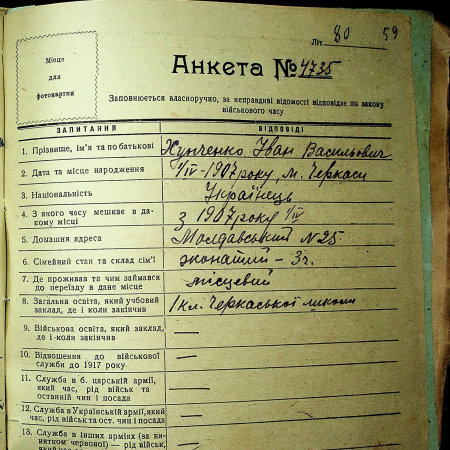 Літ. 80 59
Місце
для
фотокартки
Анкета № 4735
Заповнюється власноручно, за неправдиві відомості відповідає по закону
військового часу
ЗАПИТАННЯ ВІДПОВІДІ
1. Прізвище, ім'я та по батькові Хунченко Іван Васильович
2. Дата та місце народження 1/IV-1907 року, м. Черкаси
3. Національність Українець
4. З якого часу мешкає в да-
кому місці з 1907 року 1/IV
5. Домашня адреса Молдавський №25
6. Сімейний стан та склад сім'ї жонатий - 3 ч.
7. Де проживав та чим займався
до переїзду в дане місце місцевий
8. Загальна освіта, який учбовий
заклад, де і коли закінчив 1 кл. Черкаської школи
9. Військова освіта, який заклад,
де і коли закінчив —
10. Відношення до військової
служби до 1917 року —
11. Служба в б. царській армії,
який час, рід військ та
останній чин і посада —
12. Служба в Українській армії, який
час, рід військ та ост. чин і посада —
13. Служба в інших арміях (за ви-
нятком червоної) — рід військ,